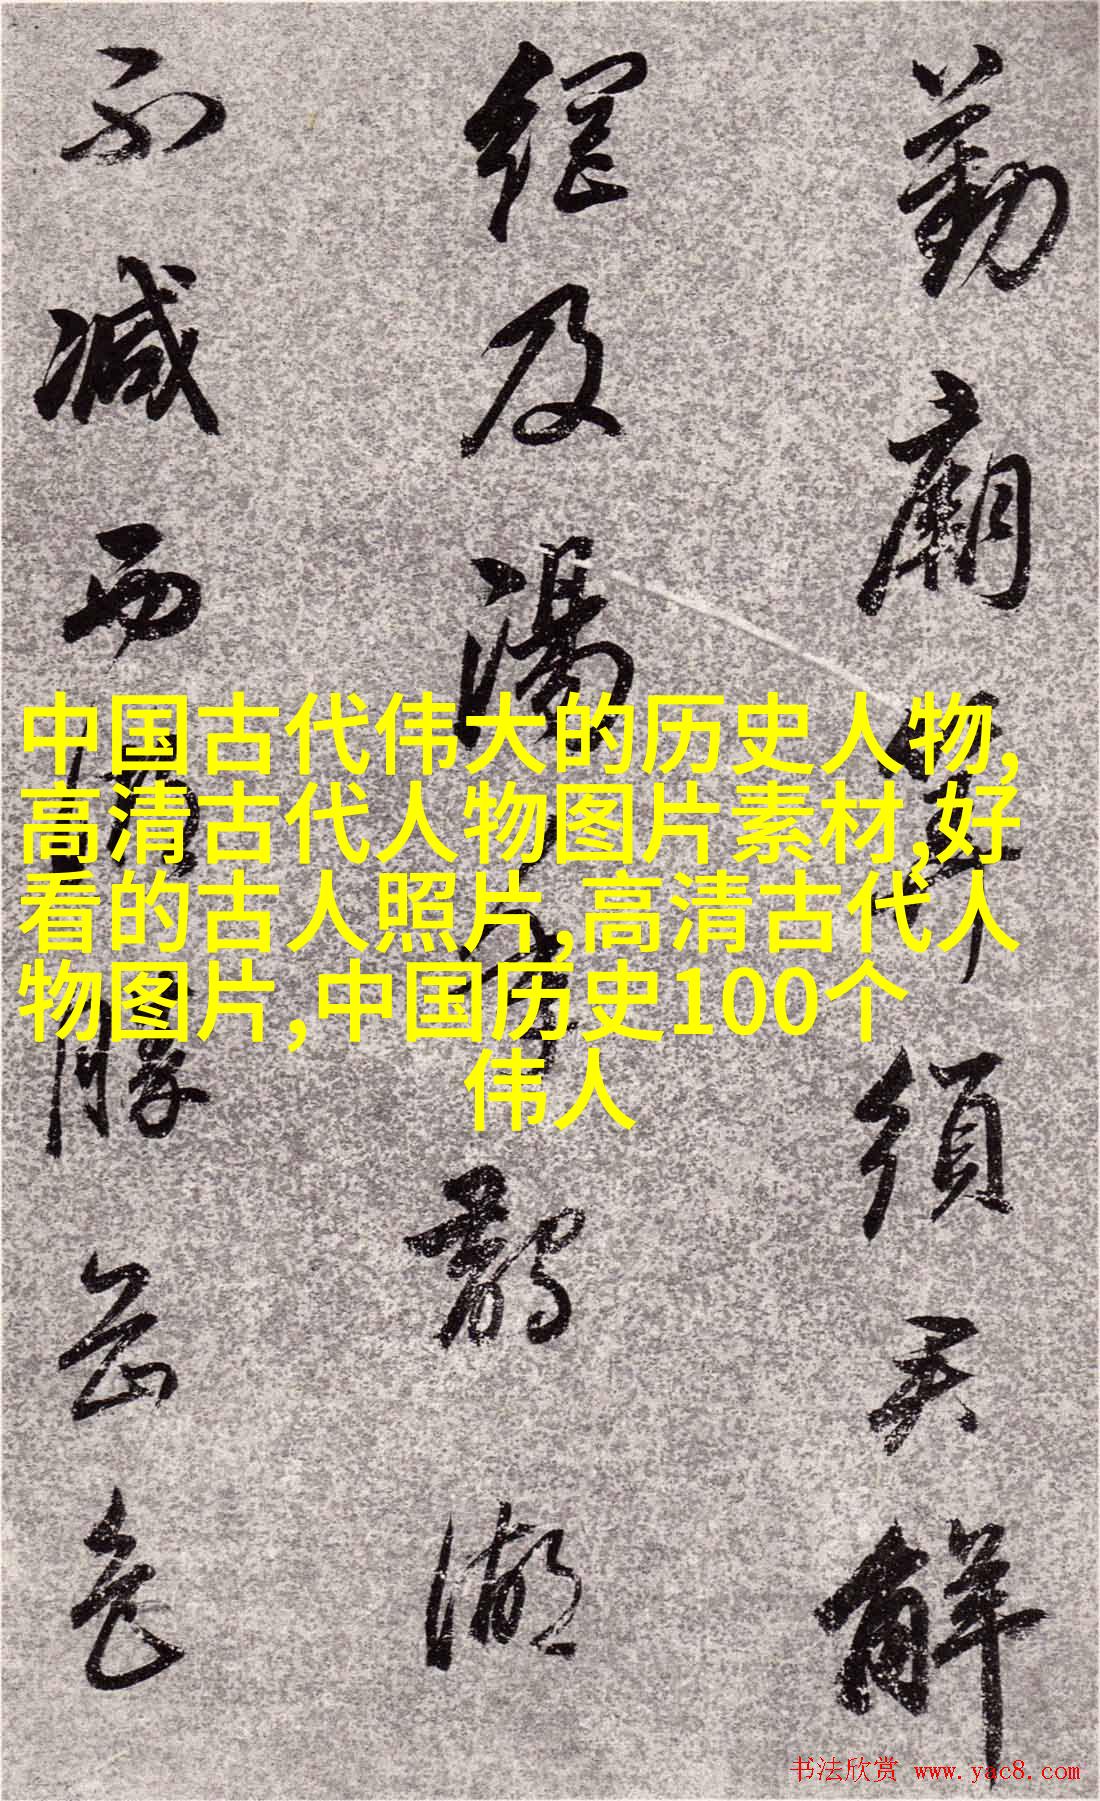 勤廟算須君解
纲及湯
鹊湖
不减西
勝岳色
中国古代伟大的历史人物,
高清古代人物图片素材,好
看的古人照片,高清古代人
物图片,中国历史100个
伟人
书法欣赏 www.yac8.com